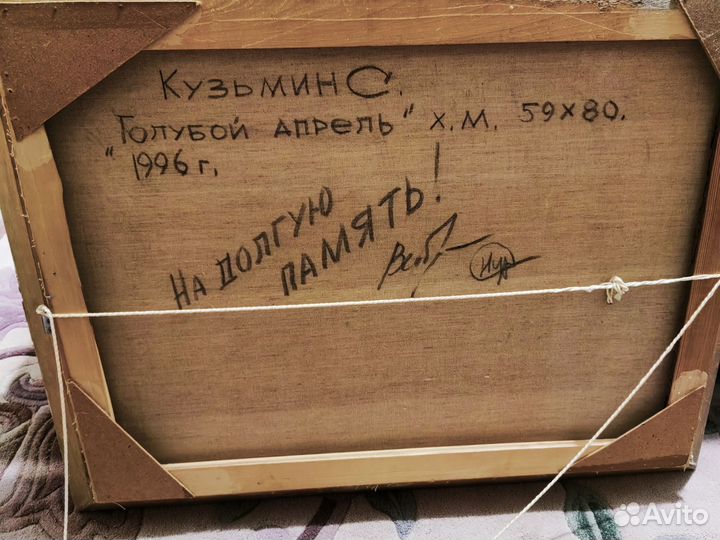 Кузьмин С.
"Голубой апрель" х.м. 59×80.
1996 г.
На долгую
память!
Avito